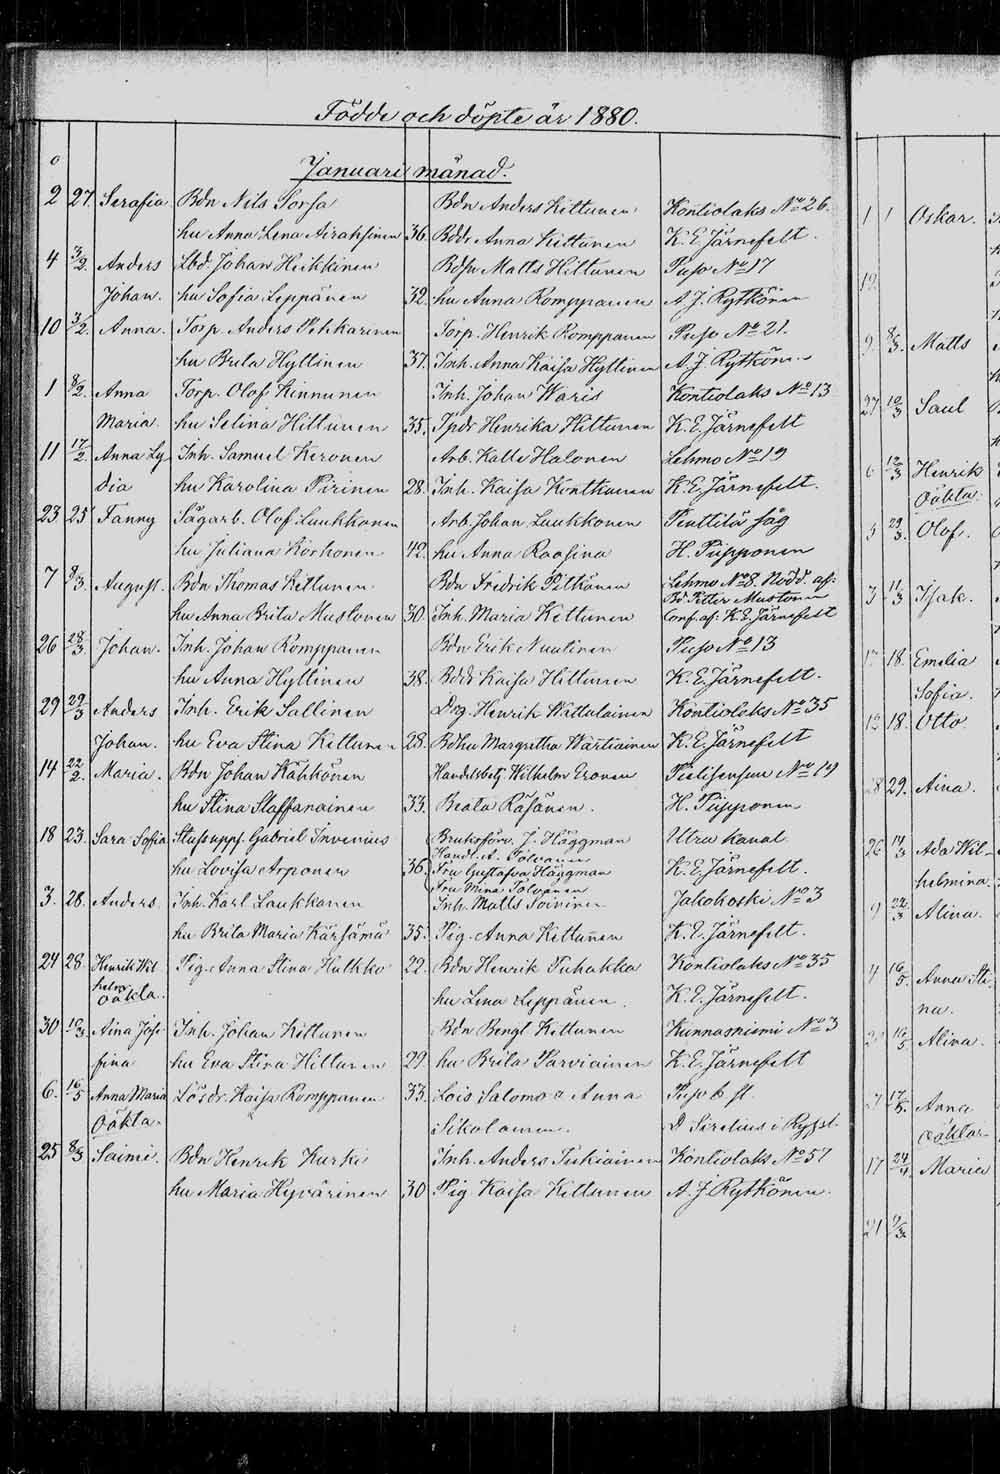 Födde och döpte år 1880.
Januari månad.
2 27. Serafia. Bdn Nils Sorsa Bdn Anders Kettunen Kontiolaks No 26.
hu Anna Lena Airaksinen 36. Bddr Anna Kettunen K. E. Järnefelt.
4 3/2. Anders Lbd. Johan Heikkinen Bdsn Matts Hiltunen Puso No 17
Johan. hu Sofia Leppänen 32. hu Anna Romppanen A J. Rytkönen
10 3/2. Anna. Torp. Anders Pehkarinen Torp. Henrik Romppanen Puso No 21.
hu Brita Hyttinen 37. Inh. Anna Kaisa Hyttinen A. J. Rytkönen
1 8/2. Anna Torp. Olof Kinnunen Inh. Johan Waris Kontiolaks No 13
Maria. hu Selina Hiltunen 35. Tpdr Henrika Hiltunen K. E. Järnefelt
11 17/2. Anna Ly Inh. Samuel Keronen Arb. Kalle Halonen Lehmo No 19
dia hu Karolina Piirinen 28. Inh. Kaisa Kontturen K. E. Järnefelt.
23 25 Fanny Sågarb. Olof Laukkanen Arb. Johan Laukkonen Penttilä såg
hu Juliana Korhonen 42. hu Anna Raasina H. Piipponen
7 8/3. August. Bdn Thomas Kettunen Bdn Fredrik Pitkänen Lehmo No 8. Nödd. af:
Bd. Petter Mustonen
hu Anna Brita Mustonen 30. Inh. Maria Kettunen Conf. af: K. E. Järnefelt
26 28/3. Johan. Inh. Johan Romppanen Bdn Erik Nuutinen Puso No 13
hu Anna Hyttinen 38. Bddr Kaisa Hiltunen K. E. Järnefelt.
29 29/3 Anders Inh. Erik Sallinen Drg. Henrik Wattulainen Kontiolaks No 35
Johan. hu Eva Stina Kettunen 28. Bdhu Margretha Wartiainen K. E. Järnefelt
14 22/2. Maria. Bdn Johan Kähkönen Handelsbetj. Wilhelm Eronen No 19
hu Stina Staffanainen 33. Beata Räsänen. H. Piipponen
18 23. Sara Sofia Slussuppf. Gabriel Invenius Bruksförv. J. Häggman Utra kanal
Handl. A. Tolvanen
hu Lovisa Arponen 36. Fru Gustafva Häggman K. E. Järnefelt.
Fru Mina Tolvanen
3. 28. Anders. Inh. Karl Laukkanen Inh. Matts Soininen Jakokoski No 3
hu Brita Maria Kärsämä 35. Pig. Anna Kettunen K. E. Järnefelt.
24 28. Henrik Wil Pig. Anna Stina Hukko 22. Bdn Henrik Puhakka Kontiolaks No 35
helm
Oäkta. hu Lena Leppänen. K. E. Järnefelt.
30 10/3. Aina Jose Inh. Johan Kettunen Bdn Bengt Kettunen Kunnasniemi No 3
fina hu Eva Stina Hiltunen 29. hu Brita Parviainen K. E. Järnefelt
6. 16/5 Anna Maria Lösdr. Kaisa Romppanen 33. Lois Salomo o Anna Puso b st.
Oäkta. Sikolainen. D Sirelius i Rysst.
25 8/3 Saimi. Bdn Henrik Kurki Inh. Anders Tiikiäinen Kontiolaks No 57
hu Maria Hyvärinen 30 Pig Kaisa Kettunen A. J. Rytkönen.
1 1 Oskar.
12.
9 8/3. Matts
27 10/3 Saul
6 12/3 Henrik
Oäkta.
5 29/3. Olof.
3 11/3 Isak.
17 18. Emilia
Sofia.
12 18. Otto
28 29. Aina.
26 14/3 Ada Wil-
helmina.
9 22/3 Alina.
4 16/5. Anna Sti
na.
16/5 Alina.
17/5. Anna
Oäkta
17 24/4. Maria
21 7/3.